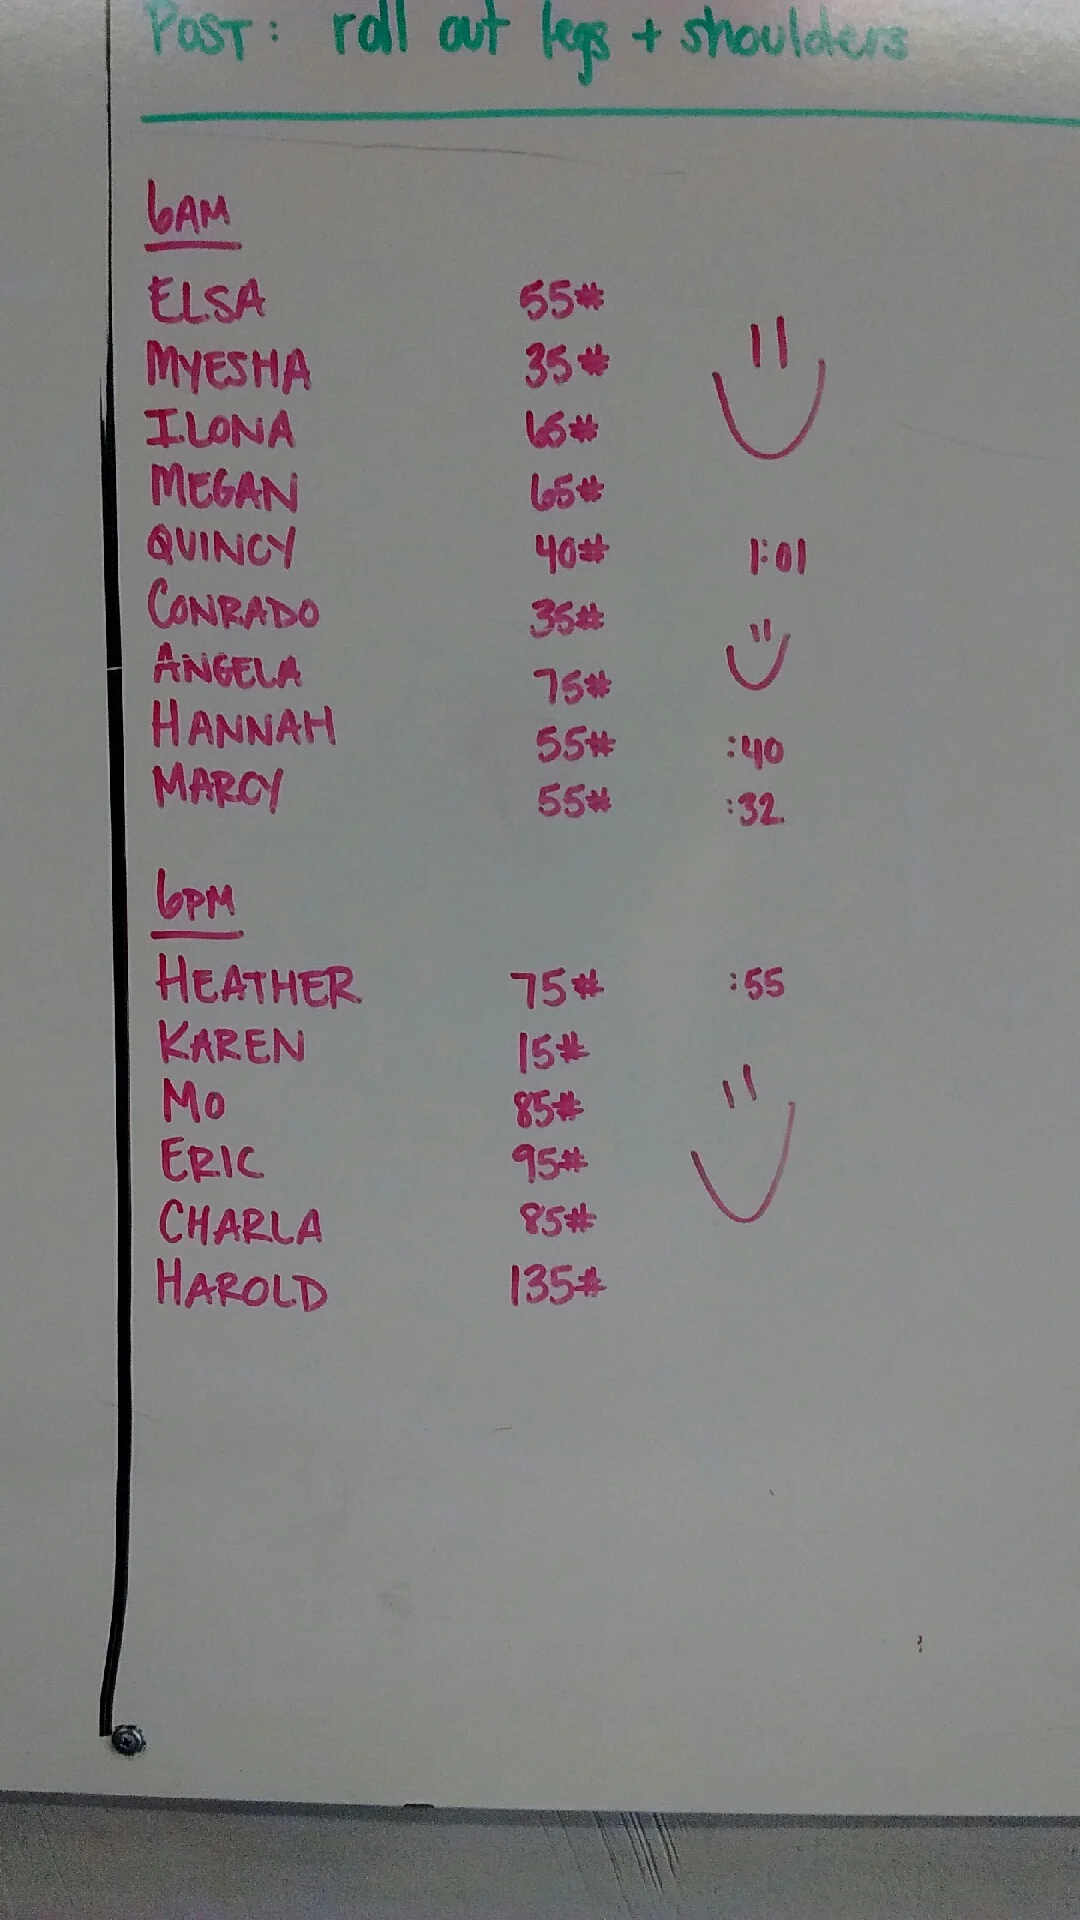 POST: roll out legs + shoulders
6AM
ELSA 55#
MYESHA 35#
ILONA 65#
MEGAN 65#
QUINCY 40# 1:01
CONRADO 35#
ANGELA 75#
HANNAH 55# :40
MARCY 55# :32
6PM
HEATHER 75# :55
KAREN 15#
MO 85#
ERIC 95#
CHARLA 85#
HAROLD 135#